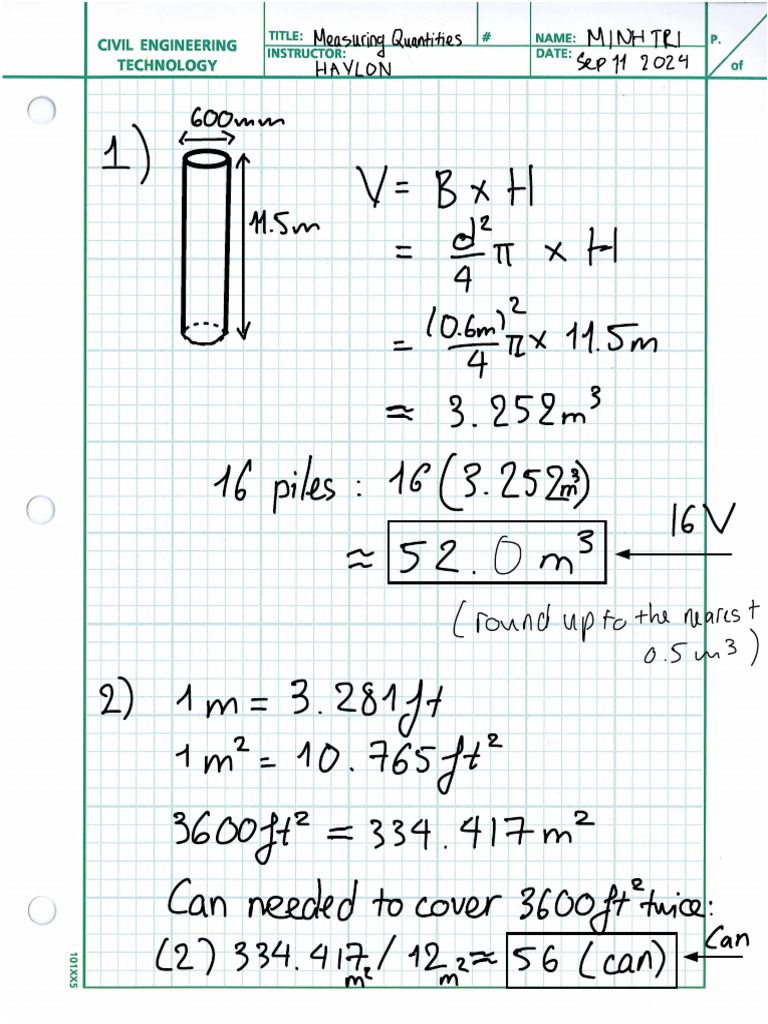 CIVIL ENGINEERING
TECHNOLOGY
TITLE: Measuring Quantities #
INSTRUCTOR:
HAYLON
NAME: MINH TRI
DATE: Sep 11 2024
P.
of
1)
600mm
11.5m
V = B x H
= d²/4 π x H
= (0.6m)²/4 π x 11.5m
≈ 3.252m³
16 piles : 16 (3.252m³)
≈ 52.0 m³
16 V
(round up to the nearest
0.5 m3)
2) 1 m = 3.281 ft
1 m² = 10.765 ft²
3600ft² = 334.417 m²
Can needed to cover 3600ft² twice:
(2) 334.417m² / 12m² ≈ 56 (can)
Can
101XX5